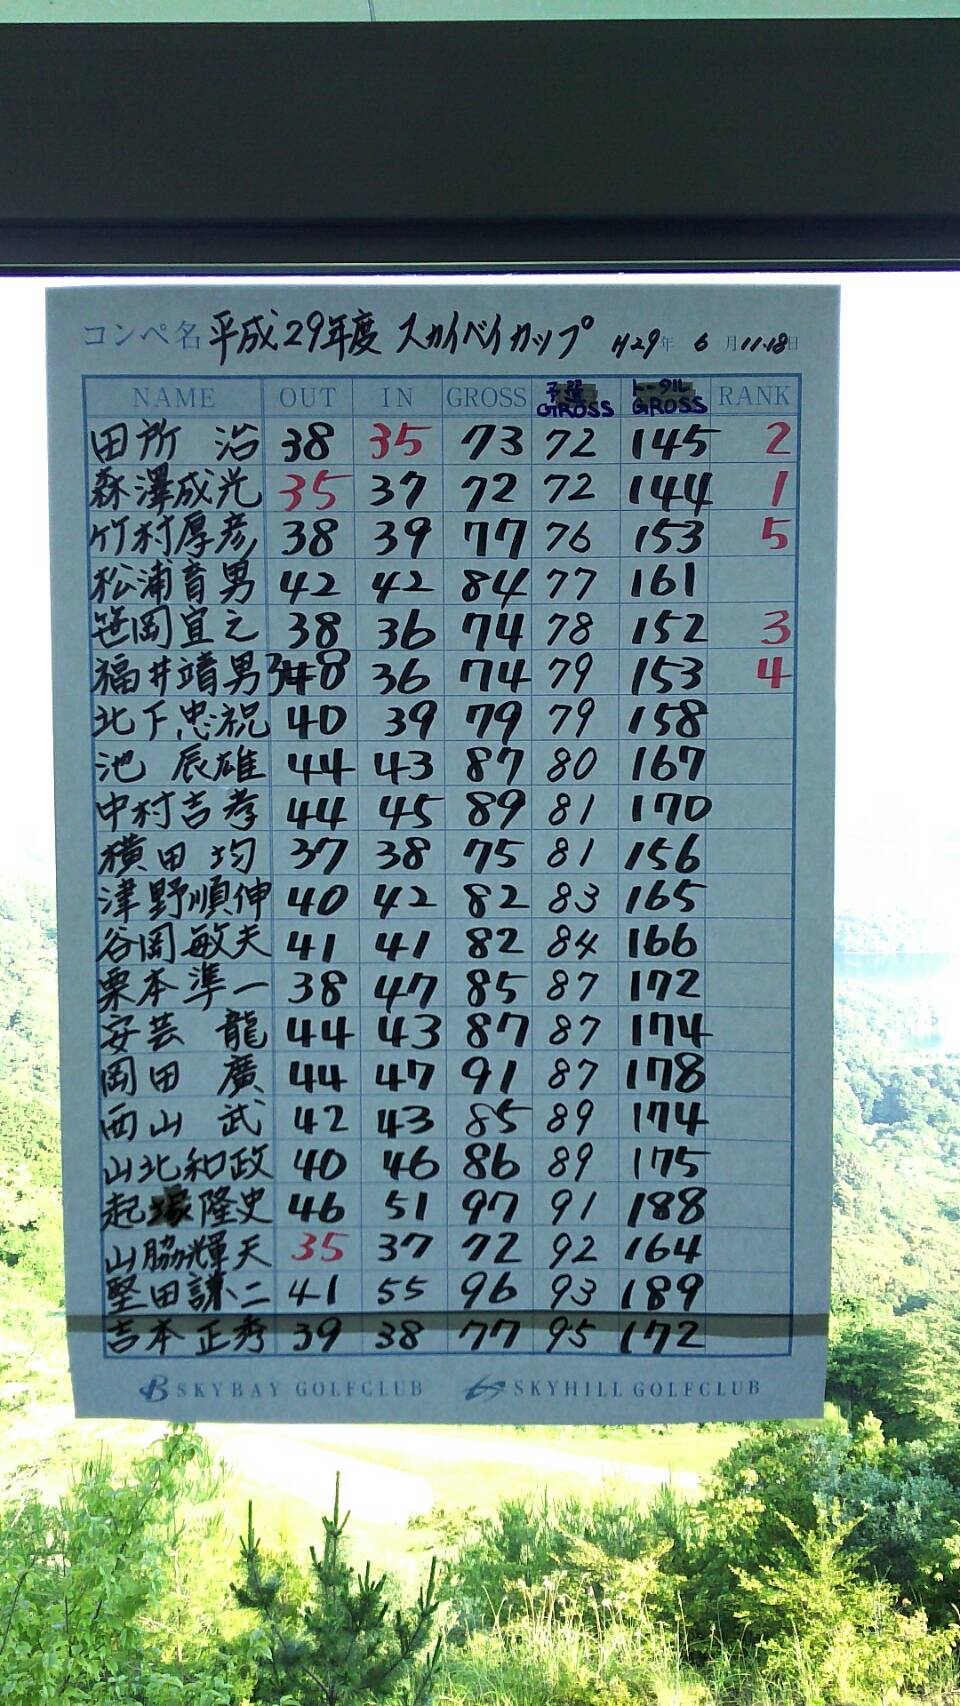 コンペ名 平成29年度 スカイベイカップ H29年 6月11.18日
NAME OUT IN GROSS 予選 GROSS トータル GROSS RANK
田所 治 38 35 73 72 145 2
森澤成光 35 37 72 72 144 1
竹村厚彦 38 39 77 76 153 5
松浦育男 42 42 84 77 161
笹岡宜之 38 36 74 78 152 3
福井靖男 38 36 74 79 153 4
北下忠祝 40 39 79 79 158
池 辰雄 44 43 87 80 167
中村吉孝 44 45 89 81 170
横田 均 37 38 75 81 156
津野順伸 40 42 82 83 165
谷岡敏夫 41 41 82 84 166
栗本準一 38 47 85 87 172
安芸 龍 44 43 87 87 174
岡田 廣 44 47 91 87 178
西山 武 42 43 85 89 174
山北和政 40 46 86 89 175
起塚隆史 46 51 97 91 188
山脇輝天 35 37 72 92 164
堅田謙二 41 55 96 93 189
吉本正秀 39 38 77 95 172
SKYBAY GOLFCLUB SKYHILL GOLFCLUB